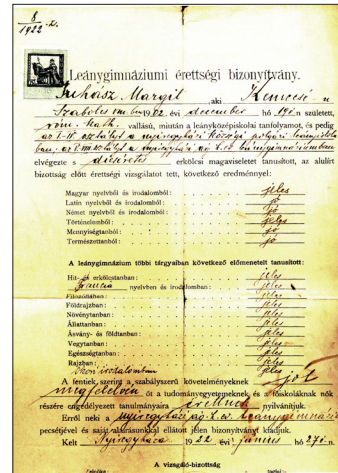 8
1922
Leánygimnáziumi érettségi bizonyítvány.
Juhász Margit, aki Kemecsé-n
Szabolcs m-ben 19 évi december hó 19-én született,
róm. kath. vallású, miután a leányközépiskolai tanfolyamot, és pedig
az I-IV. osztályt a nyíregyházi községi polgári
elvégezte s dícséretes erkölcsi magaviseletet tanusított, az alulírt
bizottság előtt érettségi vizsgálatot tett, következő eredménnyel:
Magyar nyelvből és irodalomból: jeles
Latin nyelvből és irodalomból: jó
Német nyelvből és irodalomból: jó
Történelemből: jeles
Mennyiségtanból: jó
Természettanból: jó
A leánygimnázium többi tárgyaiban következő előmenetelt tanusított:
Hit- és erkölcstanban: jeles
Francia nyelvben és irodalomban: jeles
Filozófiában: jeles
Földrajzban: jeles
Növénytanban: jeles
Állattanban: jeles
Ásvány- és földtanban: jeles
Vegytanban: jeles
Egészségtanban: jeles
Rajzban: jeles
irodalomban jeles
A fentiek szerint a szabályszerű követelményeknek jól
megfelelvén, őt a tudományegyetemeknek és a főiskoláknak nők
részére engedélyezett tanulmányaira érettnek nyilvánítjuk.
Erről neki a nyíregyházi ág. h. ev. leánygimnázium
pecsétjével és saját aláírásunkkal ellátott jelen bizonyítványt kiadjuk.
Kelt Nyíregyháza 1922 évi június hó 27-én.
A vizsgáló-bizottság